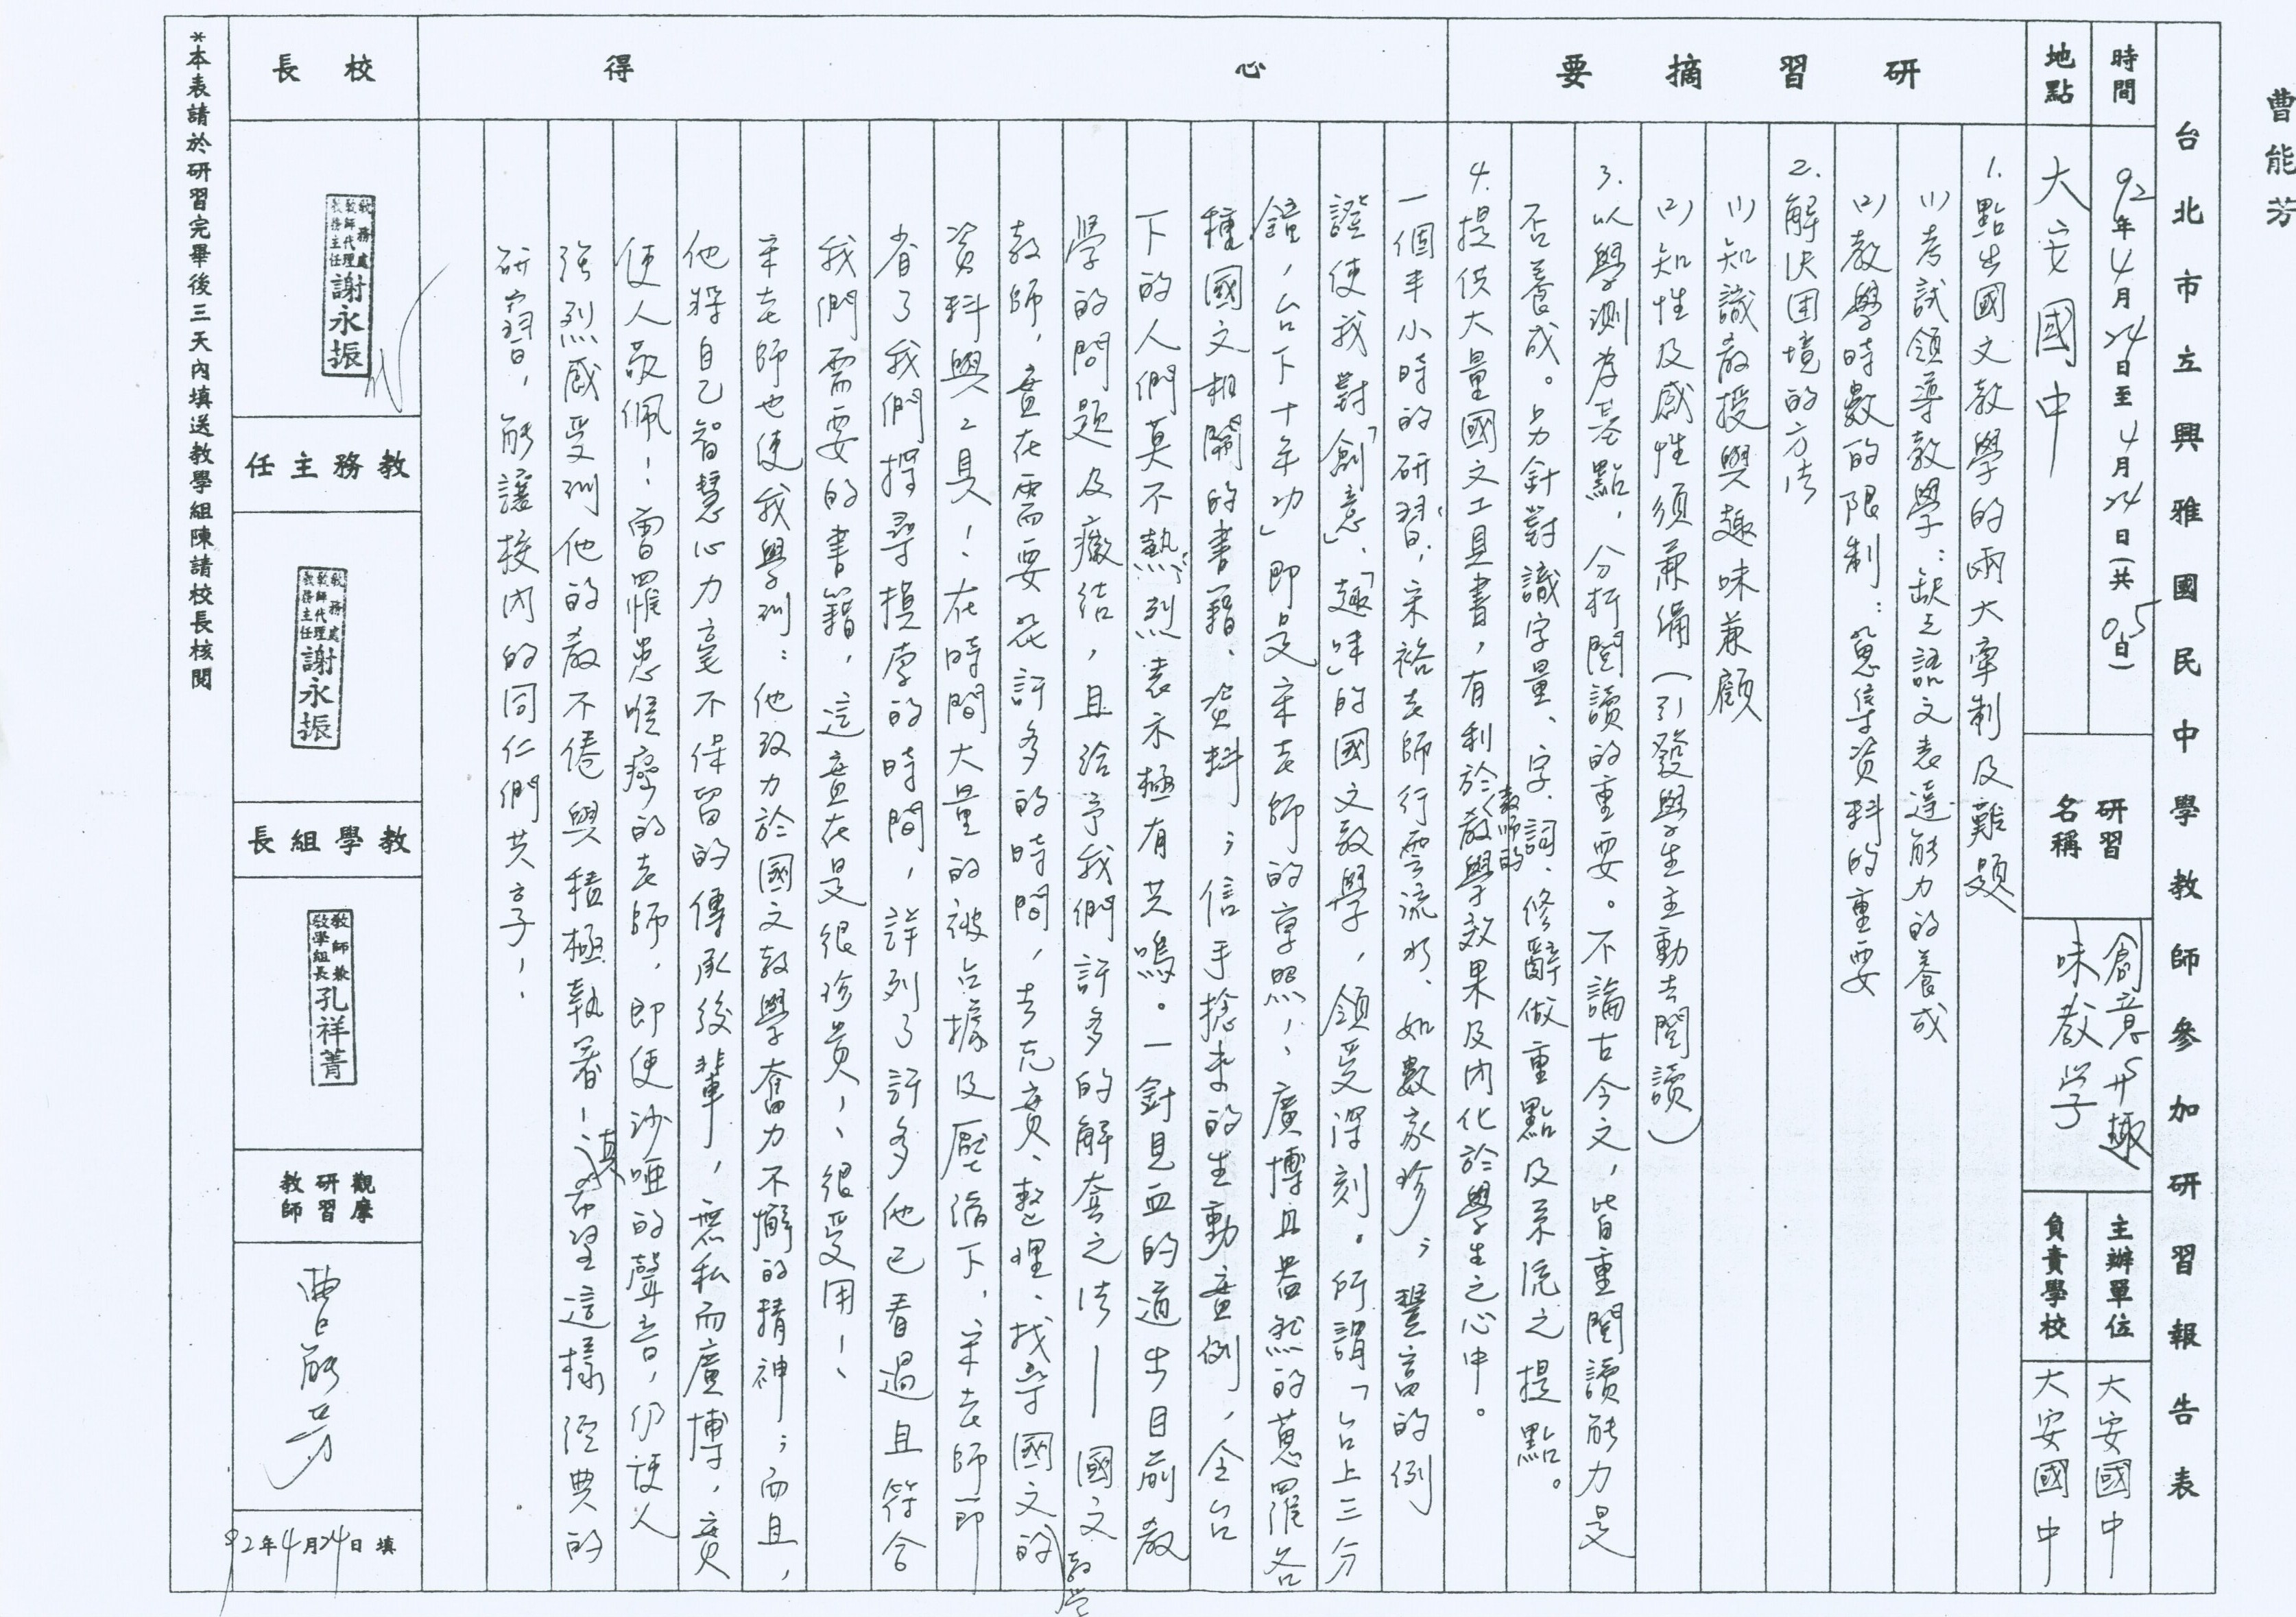 曹能芳
台北市立興雅國民中學教師參加研習報告表
時間
92年4月24日至4月24日(共0.5日)
地點
大安國中
研習名稱
創意與趣味教學
主辦單位
大安國中
負責學校
大安國中
研習摘要
1.點出國文教學的兩大牽制及難題
(1)考試領導教學：缺乏語文表達能力的養成
(2)教學時數的限制：蒐集資料的重要
2.解決困境的方法
(1)知識教授與趣味兼顧
(2)知性及感性須兼備(引發學生主動去閱讀)
3.以學測為基點，分析閱讀的重要。不論古今文，皆重閱讀能力是
否養成。另針對識字量、字、詞、修辭做重點及系統之提點。
4.提供大量國文工具書，有利於教師的教學效果及內化於學生之心中。
心得
一個半小時的研習，宋裕老師行雲流水、如數家珍；豐富的例
證使我對「創意」、「趣味」的國文教學，領受深刻。所謂「台上三分
鐘，台下十年功」即是宋老師的寫照，廣博且盎然的蒐羅各
種國文相關的書籍、資料；信手捻來的生動實例，令台
下的人們莫不熱烈表示極有共鳴。一針見血的道出目前教
學的問題及癥結，且給予我們許多的解套之法—國文
教師，實在需要花許多的時間，去充實、整理、找尋國文的教學
資料與工具！在時間大量的被占據及壓縮下，宋老師即
省了我們探尋摸索的時間，詳列了許多他已看過且符合
我們需要的書籍，這實在是很珍貴、很受用！
宋老師也使我學到：他致力於國文教學奮力不懈的精神；而且，
他將自己智慧心力毫不保留的傳承後輩，無私而廣博，實
使人敬佩！曾罹患喉癌的老師，即便沙啞的聲音，仍使人
強烈感受到他的教不倦與積極執著！真希望這樣經典的
研習，能讓校內的同仁們共享！
校長
教務處 教師代理 教務主任 謝永振
代
教務主任
教務處 教師代理 教務主任 謝永振
教學組長
教師兼 教學組長 孔祥菁
觀摩研習教師
曹能芳
92年4月24日填
*本表請於研習完畢後三天內填送教學組陳請校長核閱